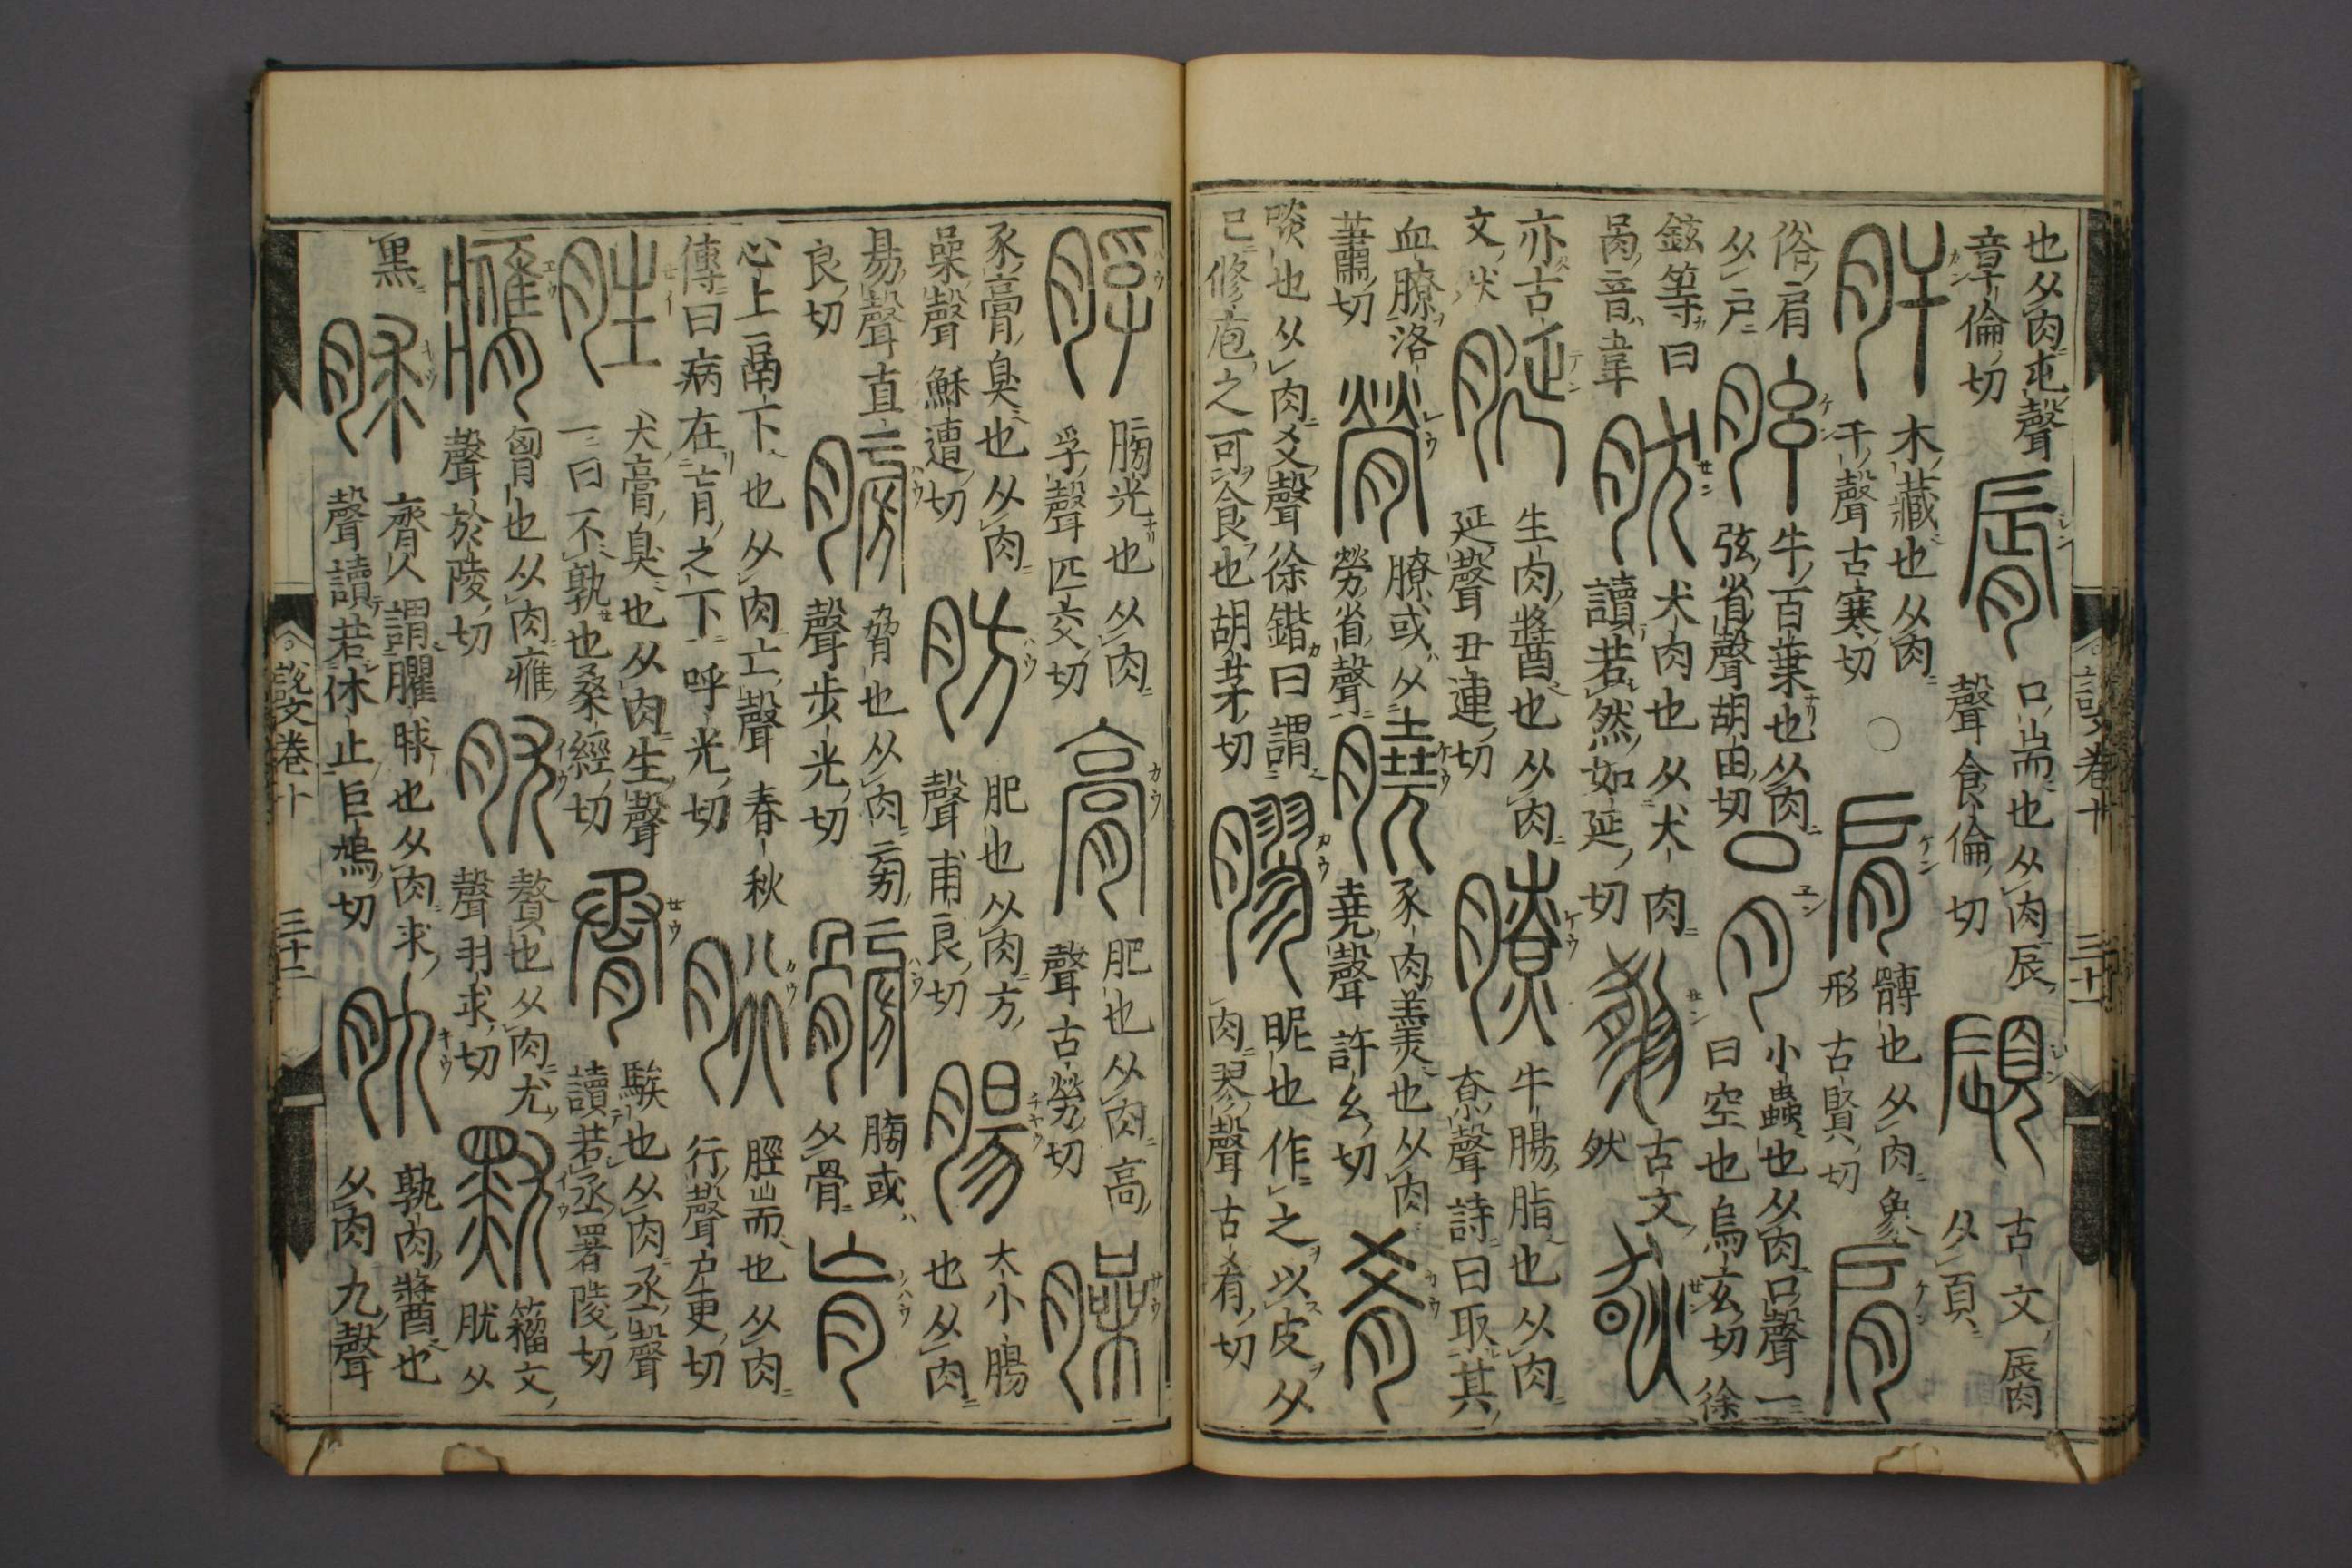 也从肉屯聲
章倫切
脣
口耑也从肉辰
聲食倫切
顅
古文脣
从頁
肝
木藏也从肉
干聲古寒切
○
肩
髆也从肉象
形古賢切
肩
俗肩
从戶
胘
牛百葉也从肉
弦省聲胡田切
肙
小蟲也从肉口聲一
曰空也烏玄切徐
鉉等曰
咼音韋
肰
犬肉也从犬肉
讀若然如延切
古文
肰
亦古
文肰
脠
生肉醬也从肉
延聲丑連切
膫
牛腸脂也从肉
尞聲詩曰取其
血膫洛
蕭切
膋
膫或从
勞省聲
膮
豕肉羹也从肉
堯聲許幺切
肴
啖也从肉爻聲徐鍇曰謂
已修庖之可食也胡茅切
膠
昵也作之以皮从
肉翏聲古肴切
說文卷十
三十一
脬
膀光也从肉
孚聲匹交切
膏
肥也从肉高
聲古勞切
臊
豕膏臭也从肉
喿聲穌遭切
肪
肥也从肉方
聲甫良切
腸
大小腸
也从肉
昜聲直
良切
膀
脅也从肉旁
聲步光切
髈
膀或
从骨
肓
心上鬲下也从肉亡聲春秋
傳曰病在肓之下呼光切
胻
脛耑也从肉
行聲戶更切
胜
犬膏臭也从肉生聲
一曰不孰也桑經切
脀
騃也从肉丞聲
讀若丞署陵切
膺
匈也从肉雁
聲於陵切
肬
贅也从肉尤
聲羽求切
籀文
肬从
黑
脙
齊人謂臞脙也从肉求
聲讀若休止巨鳩切
肍
孰肉醬也
从肉九聲
說文卷十
三十二